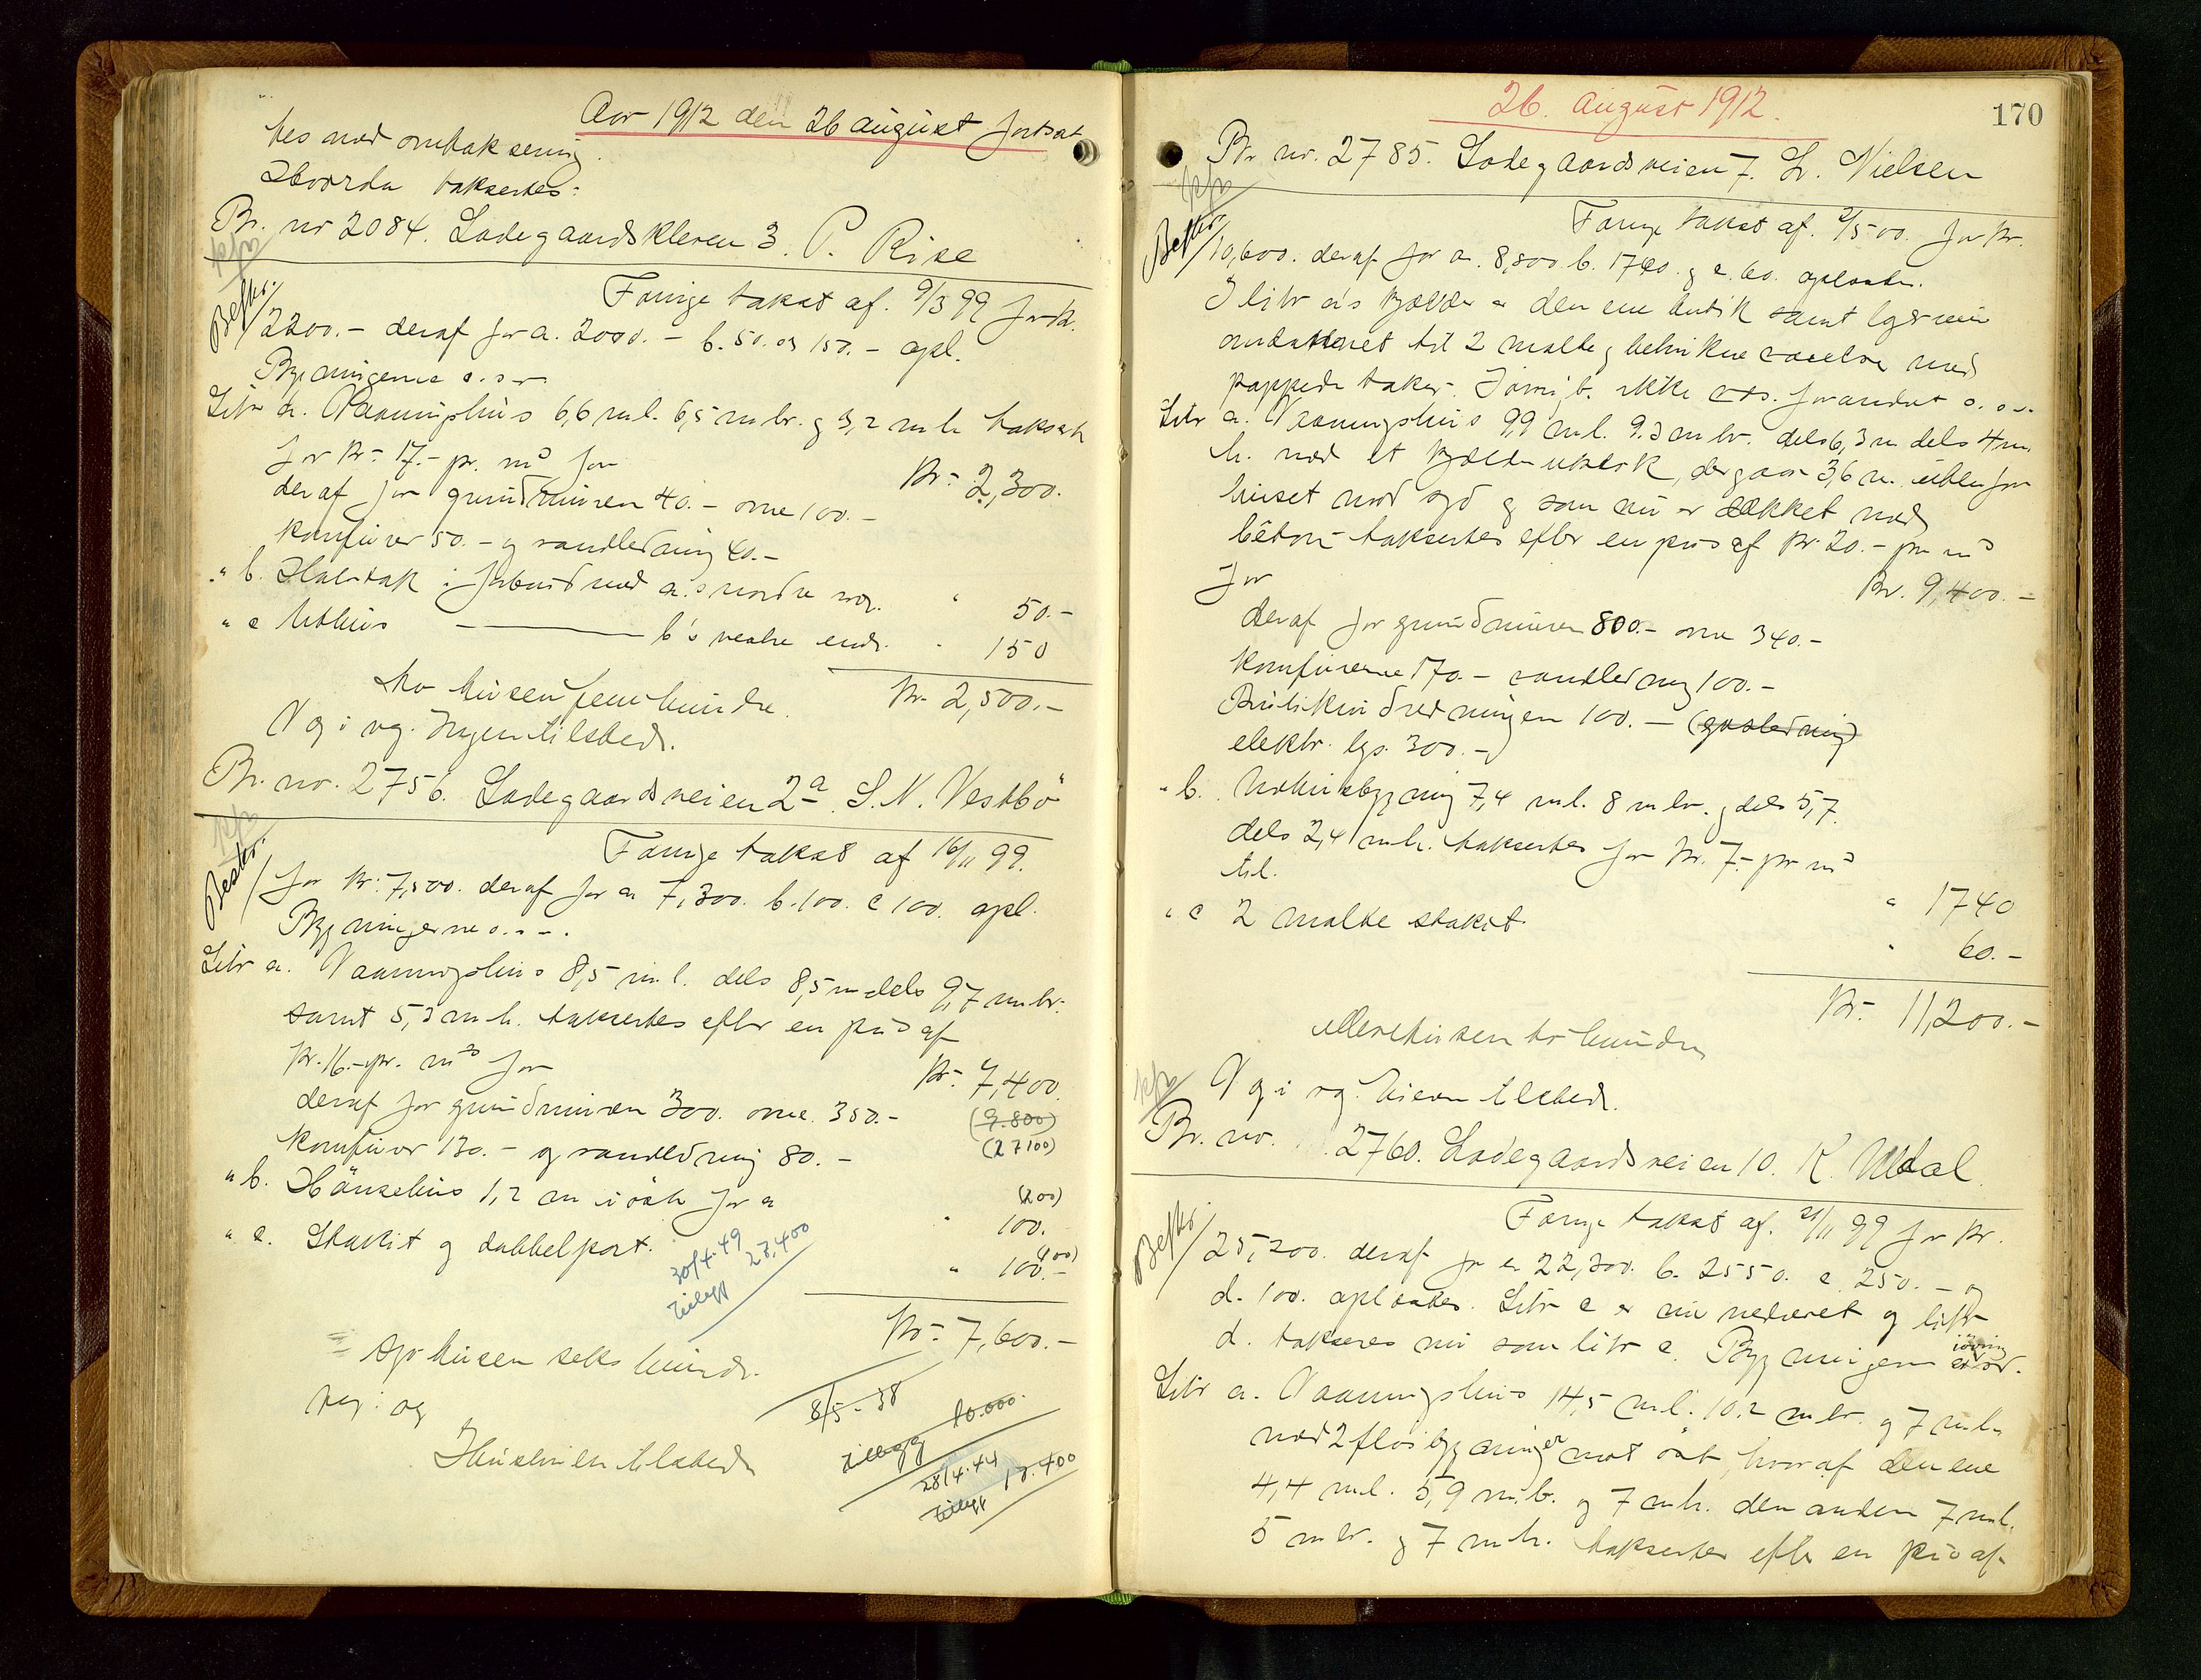 Aar 1912 den 26 august fortsat
tes med omtaksering.
Hvorda taksertes:
Br. nr 2084. Ladegaardskleven 3. P. Rise
Forrige takst af. 9/3 99 for kr.
Bestyr. 2200.- deraf for a. 2000.- b. 50. og 150.- opl.
Bygningerne
Litr a. Vaaningshus 6,6 m l. 6,5 m br. g 3,2 m h. taksert
for kr. 17.- pr. m3 for Kr. 2,300.
deraf for grundmuren 40.- ovne 100.-
komfurer 50.- og vandledning 40.-
" b. Halvtak i forbind med a's nordre væg. " 50.-
" c Uthus — b's vestre ende. " 150
Kr. 2,500.-
to tusen fem hundre.
V g i vg. Ingen tilstede.
Br. nr. 2756. Ladegaardsveien 2a. S. N. Vestbö
Forrige takst af 16/11 99.
for kr. 7,500. deraf for a 7,300. b. 100. c 100. opl.
Bygningerne
Litr a. Vaaningshus 8,5 m l. dels 8,5 m dels 9,7 m br.
samt 5,3 m h. taksertes efter en pris af
kr. 16.- pr. m3 for Kr. 7,400.
deraf for grundmuren 300. ovne. 350.- (9.800)
komfurer 130.- og vandledning 80.- (27100)
" b. Hönsehus 1,2 m i öst for a (200)
" 100.
" c. Stakit og dobbelport. (100)
" 100.-
30/4.49
Tillegg 27,400
Kr. 7,600.-
= syv tusen seks hundre.
8/5-38
Tillegg 10.000.
28/4.44
Tillegg 13.400
Husets eier tilstede
26. august 1912.
170
Br. nr. 2785. Ladegaardsveien 7. L. Nielsen
Forrige takst af. 2/5 00. for kr.
10,600. deraf for a. 8,800 b. 1740. g c. 60. oplæstes.
I litr a's kjælder er den ene butik samt lagerrum
omdannet til 2 malte g betrukne værelser med
pappede taker. Forövrig b. ikke forandret
Litr a. Vaaningshus 9,9 m l. 9.3 m br. dels 6,3 m dels 4 m
h. med et kjælderutstik, der gaar 3,6 m. utenfor
huset mod syd g som nu er dækket med
beton taksertes efter en pris af kr. 20.- pr m3
for Kr. 9,400.-
deraf for grundmuren 800.- ovne 340.-
komfurerne 170.- vandledning 100.-
Butikindredningen 100.- (gasledning)
elektr. lys. 300.-)
" b. Uthusbygning 7,4 m l. 8 m br. g dels 5,7
dels 2,4 m h. taksertes for kr. 7.- pr m3
til. " 1740
" c 2 malte stakit " 60.-
Kr. 11,200.-
ellevetusen to hundre
V g i vg. Eieren tilstede.
Br. nr. 2760. Ladegaardsveien 10. K. Utdal.
Forrige takst af. 21/11 99 for kr.
25,200. deraf for a 22,300. b. 2550. c 250.- og
d. 100. oplæstes. Litr c er nu nedrevet g litr
d. takseres nu som litr c. Bygningerne iövrig
Litr a. Vaaningshus 14,5 m l. 10.2 m br. og 7 m h.
med 2 flöibygninger mot öst, hvoraf den ene
4,4 m l. 5,9 m b. g 7 m h. den anden 7 m l.
5 m br. g 7 m h. taksertes efter en pris af